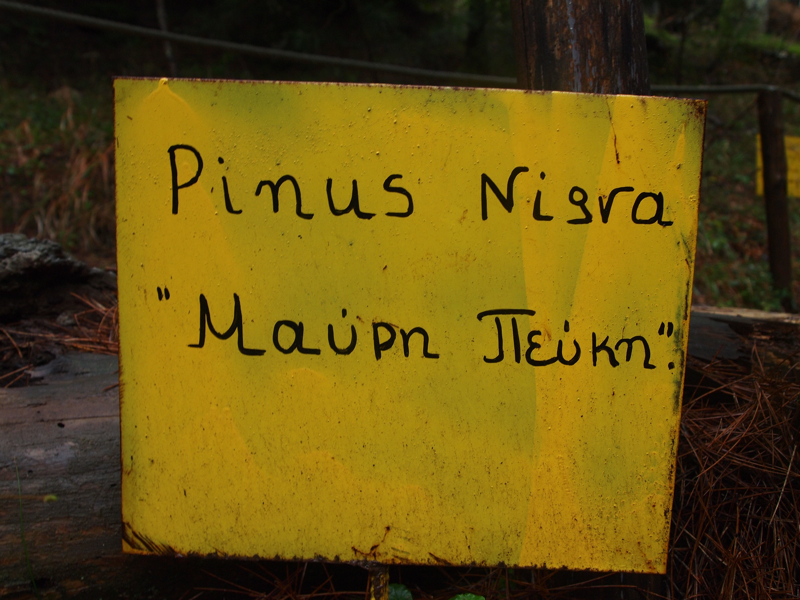 Pinus Nigra
"Μαύρη Πεύκη".